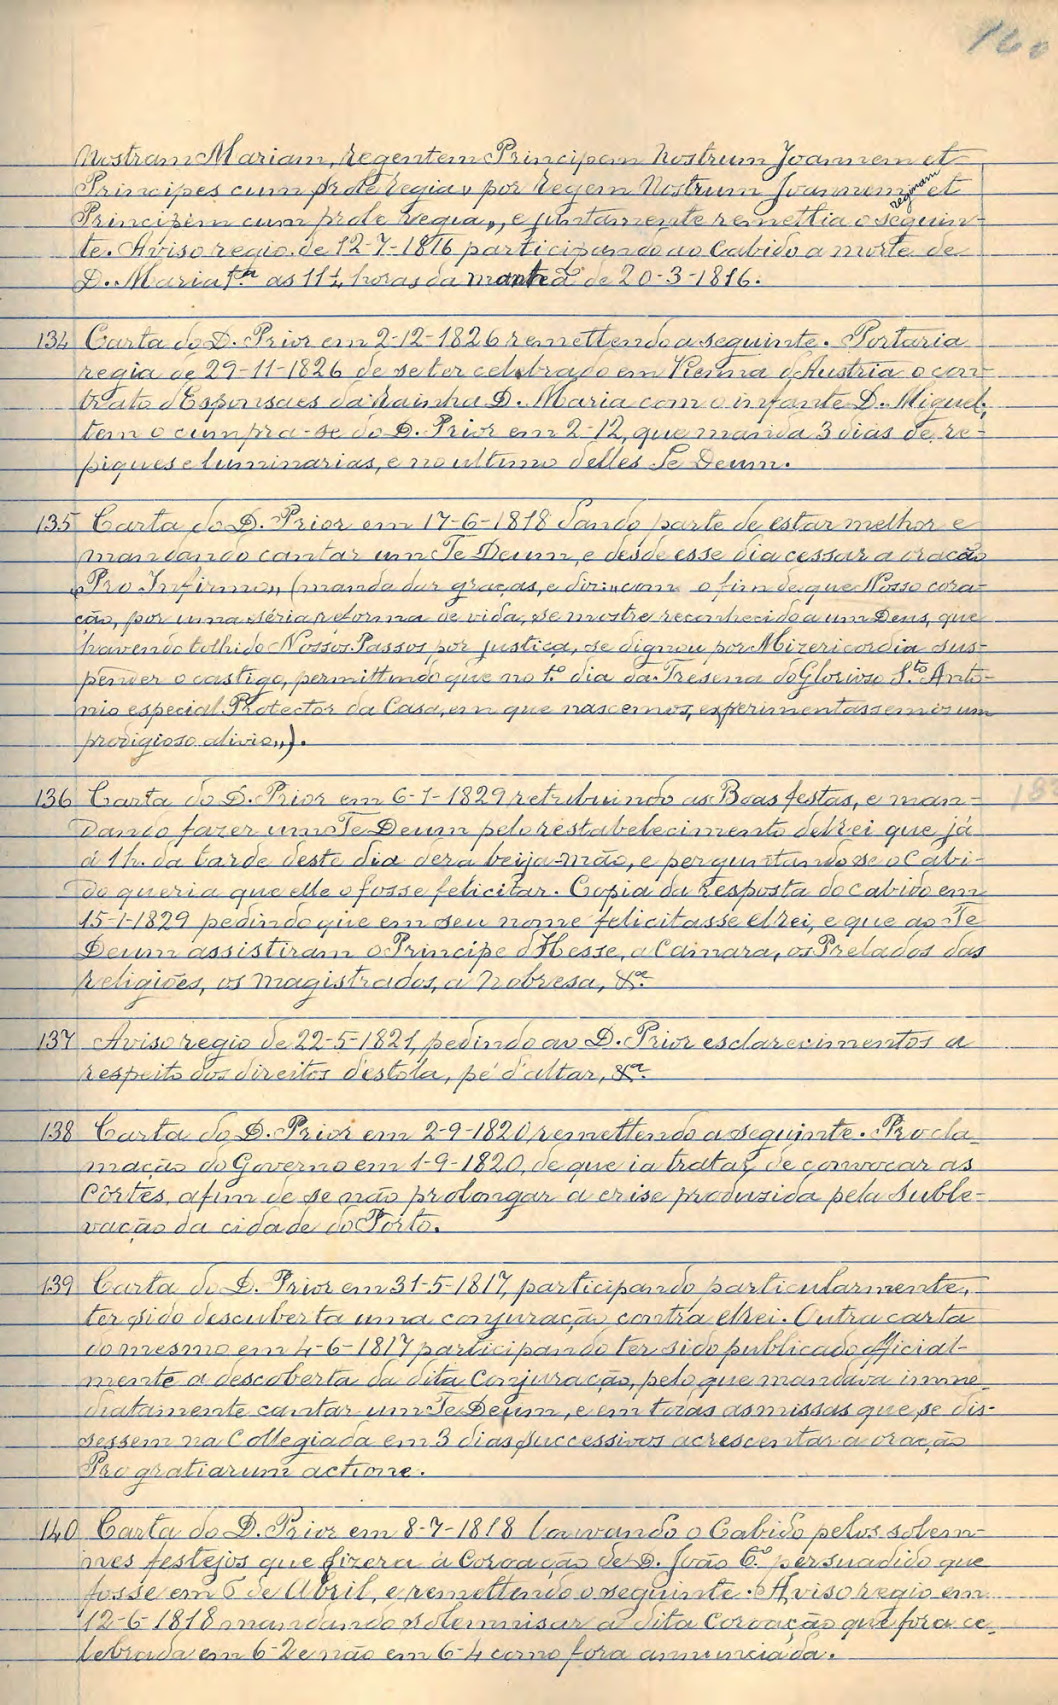 160
Nostram Mariam, Regentem Principem Nostrum Joannem et
Principes cum prole regia, por Regem Nostrum Joannem, reginam et
Principem cum prole regia,, e juntamente remettia o seguin-
te. Aviso regio de 12-7-1816 participando ao Cabido a morte de
D. Maria 1ª as 11¼ horas da manhã de 20-3-1816.
134 Carta do D. Prior em 2-12-1826 remettendo a seguinte. Portaria
regia de 29-11-1826 de se ter celebrado em Vienna d'Austria o con-
trato d'Esponsaes da Rainha D. Maria com o infante D. Miguel,
tem o cumpra-se do D. Prior em 2-12, que manda 3 dias de re-
piques e luminarias, e no ultimo delles Te Deum.
135 Carta do D. Prior em 17-6-1818 dando parte de estar melhor e
mandando cantar um Te Deum, e desde esse dia cessar a oração
„Pro Infirmo„ (manda dar graças, e diz:„com o fim de que Nosso cora-
ção, por uma séria reforma de vida, se mostre reconhecido a um Deus, que
havendo tolhido Nossos Passos, por justiça, se dignou por Mizericordia sus-
pender o castigo, permittindo que no 1.º dia da Tresena do Glorioso S.to Anto-
nio especial Protector da Casa, em que nascemos, experimentassemos um
prodigioso alivio„).
136 Carta do D. Prior em 6-1-1829 retribuindo as Boas festas, e man-
dando fazer um Te Deum pelo restabelecimento delrei que já
á 1 h. da tarde deste dia dera beija-mão, e perguntando se o Cabi-
do queria que elle o fosse felicitar. Copia da resposta do Cabido em
15-1-1829 pedindo que em seu nome felicitasse elrei, e que ao Te
Deum assistiram o Principe d'Hesse, a Camara, os Prelados das
religiões, os magistrados, a nobresa, &ª
137 Aviso regio de 22-5-1821, pedindo ao D. Prior esclarecimentos a
respeito dos direitos d'estola, pé d'altar, &ª
138 Carta do D. Prior em 2-9-1820 remettendo a seguinte. Procla-
mação do Governo em 1-9-1820, de que ia tratar de convocar as
Côrtes, afim de se não prolongar a crise produzida pela suble-
vação da cidade do Porto.
139 Carta do D. Prior em 31-5-1817, participando particularmente,
ter sido descuberta uma conjuração contra elrei. Outra carta
do mesmo em 4-6-1817 participando ter sido publicado official-
mente a descoberta da dita Conjuração, pelo que mandava imme-
diatamente cantar um Te Deum, e em todas as missas que se dis-
sessem na Collegiada em 3 dias successivos acrescentar a oração
Pro gratiarum actione.
140 Carta do D. Prior em 8-7-1818 louvando o Cabido pelos solem-
nes festejos que fizera á Coroação de D. João 6.º persuadido que
fosse em 6 de Abril, e remettendo o seguinte. Aviso regio em
12-6-1818 mandando solemnisar a dita Coroação que fora ce-
lebrada em 6-2 e não em 6-4 como fora annunciada.